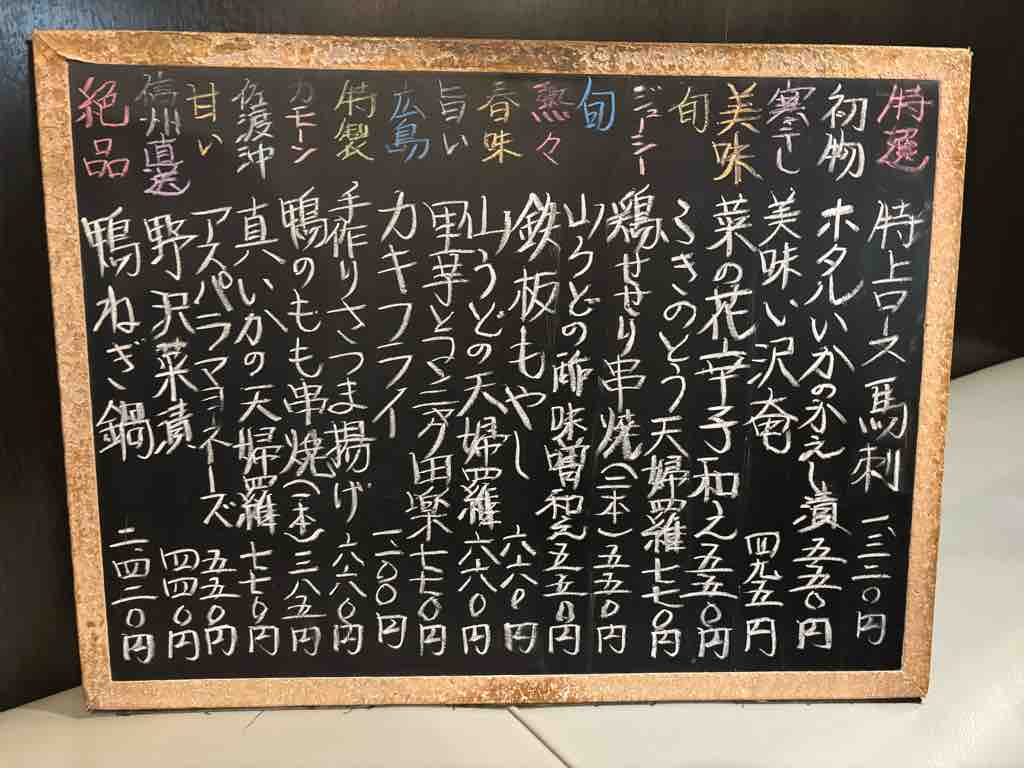 特選 特上ロース馬刺 一、三二〇円
初物 ホタルいかのかえし漬 五五〇円
寒干し 美味い沢庵 四九五円
美味 菜の花辛子和え 五五〇円
旬 ふきのとう天婦羅 七七〇円
ジューシー 鶏せせり串焼(二本) 五五〇円
旬 山うどの酢味噌和え 五五〇円
熱々 鉄板もやし 六六〇円
春味 山うどの天婦羅 六六〇円
旨い 里芋とコンニャク田楽 七七〇円
広島 カキフライ 一、一〇〇円
特製 手作りさつま揚げ 六六〇円
カモーン 鴨のもも串焼(一本) 三八五円
佐渡沖 真いかの天婦羅 七七〇円
甘い アスパラマヨネーズ 五五〇円
信州直送 野沢菜漬 四四〇円
絶品 鴨ねぎ鍋 二、四二〇円